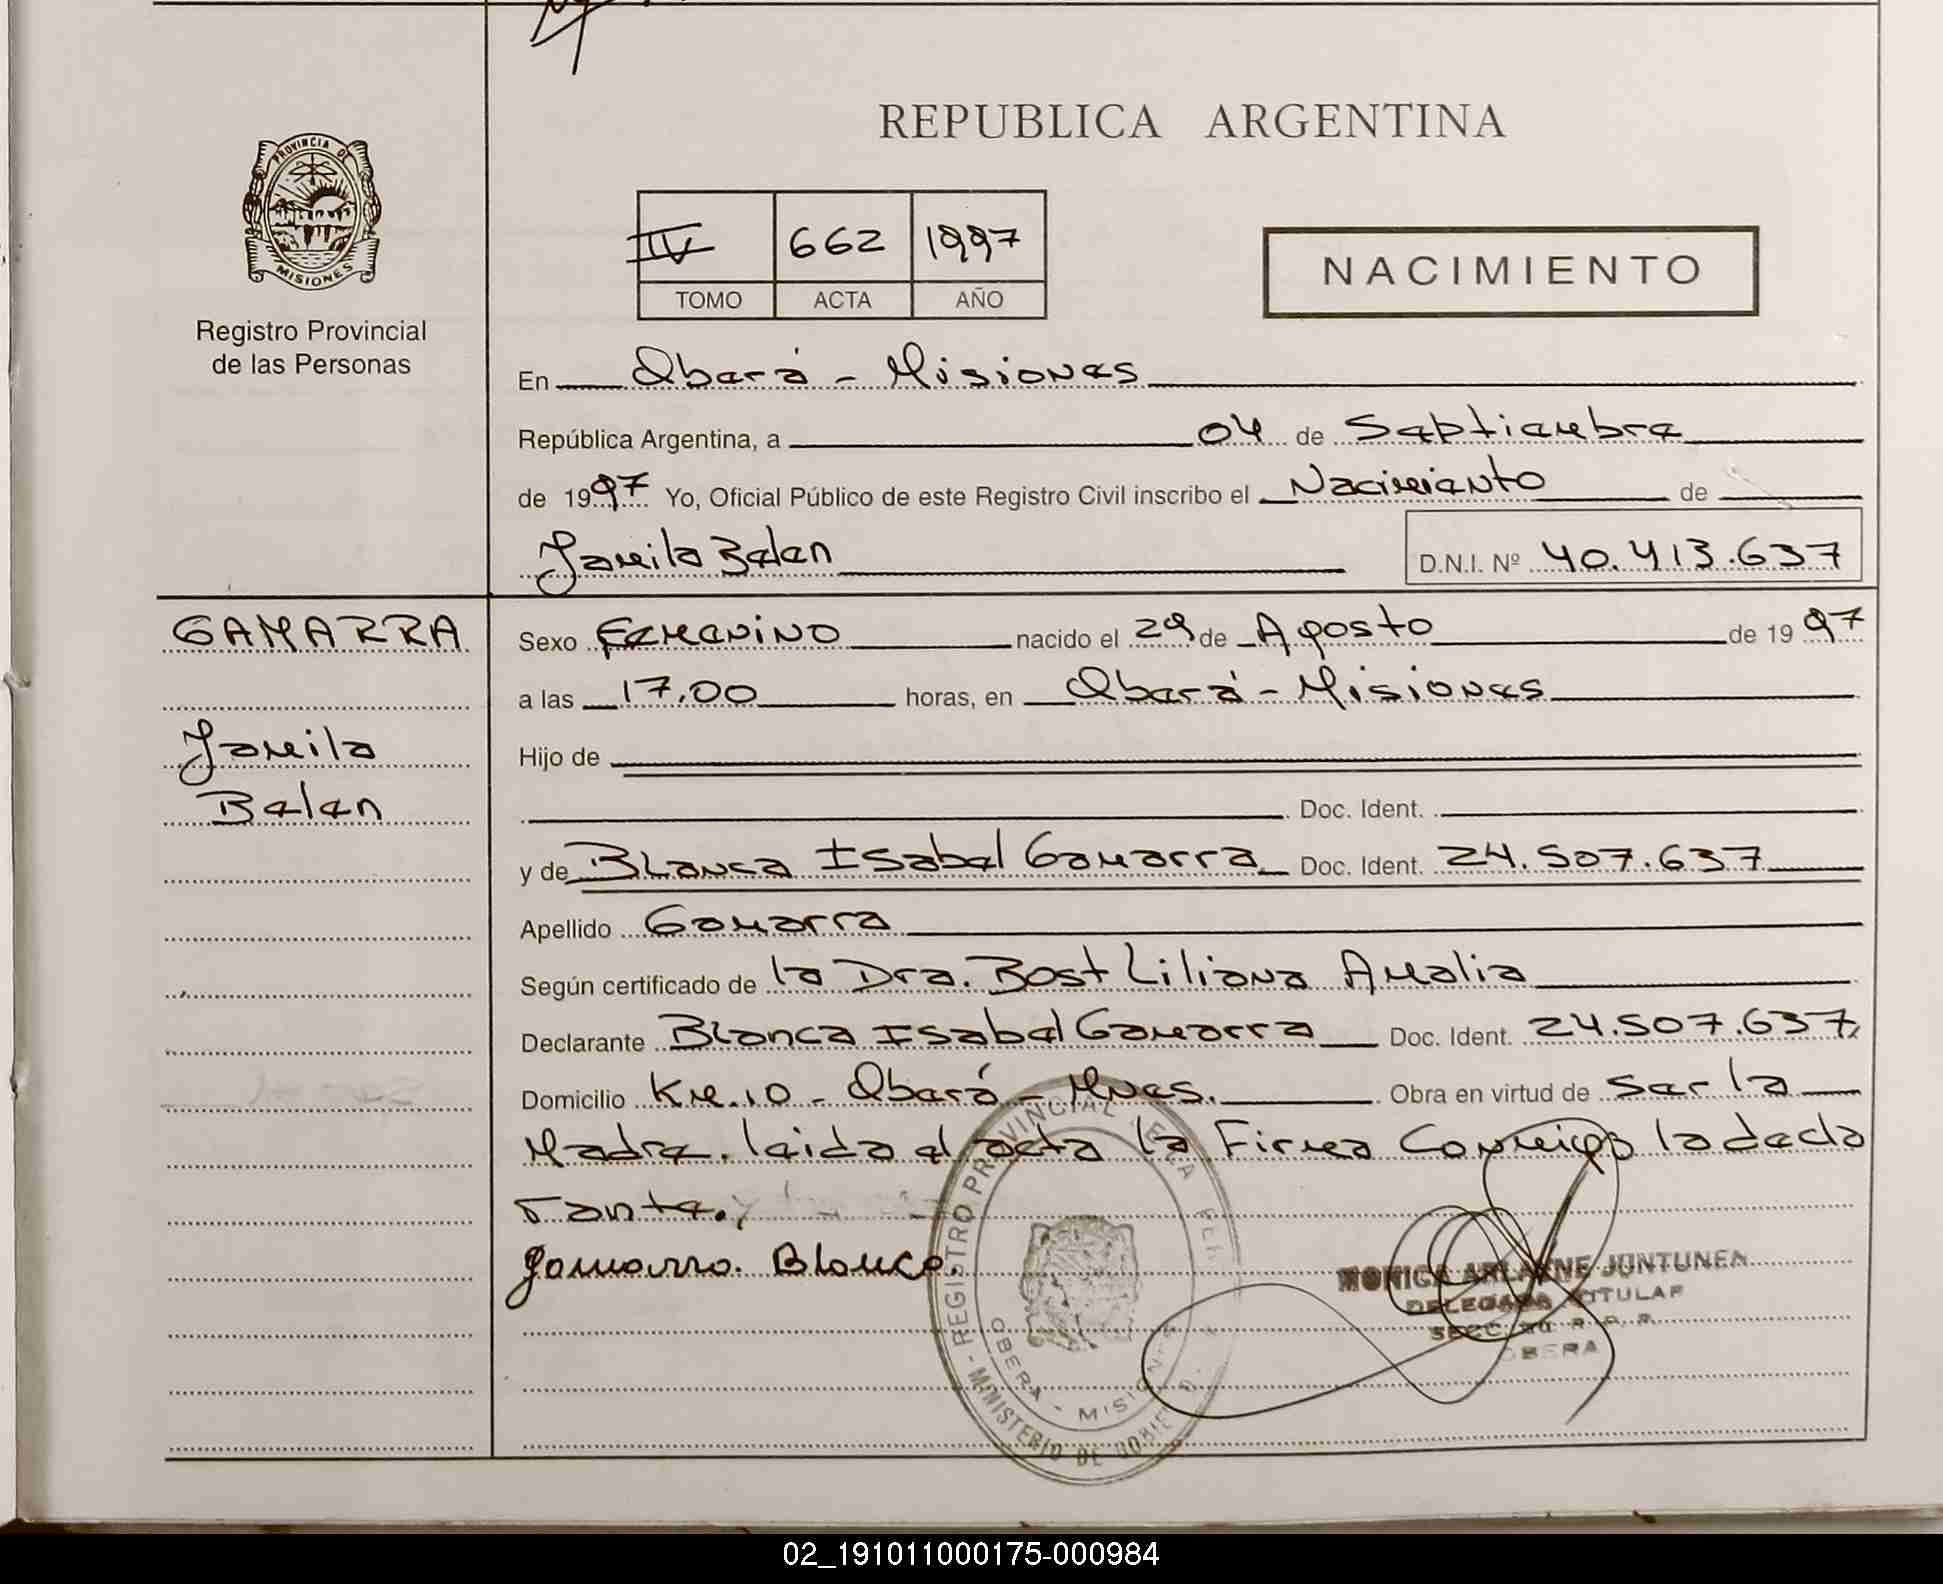 REPUBLICA ARGENTINA
PROVINCIA DE
MISIONES
Registro Provincial
de las Personas
IV 662 1997
TOMO ACTA AÑO
NACIMIENTO
En Oberá - Misiones
República Argentina, a 04 de Septiembre
de 1997 Yo, Oficial Público de este Registro Civil inscribo el Nacimiento de
Jamila Belen D.N.I. Nº 40.413.637
GAMARRA
Jamila
Belen
Sexo Femenino nacido el 29 de Agosto de 1997
a las 17.00 horas, en Oberá - Misiones
Hijo de
Doc. Ident.
y de Blanca Isabel Gamarra Doc. Ident. 24.507.637
Apellido Gamarra
Según certificado de la Dra. Bost Liliana Amalia
Declarante Blanca Isabel Gamarra Doc. Ident. 24.507.637
Domicilio Km.10 - Oberá - Mnes. Obra en virtud de ser la
Madre. leida el acta la Firma Conmigo la decla
rante.
Gamarra Blanca.
REGISTRO PROVINCIAL DE LAS PER
MINISTERIO DE GOBIE
OBERA - MISIONES
MONICA ARLAENE JUNTUNEN
DELEGADA TITULAR
SECC. R. P. P.
OBERA
02_191011000175-000984